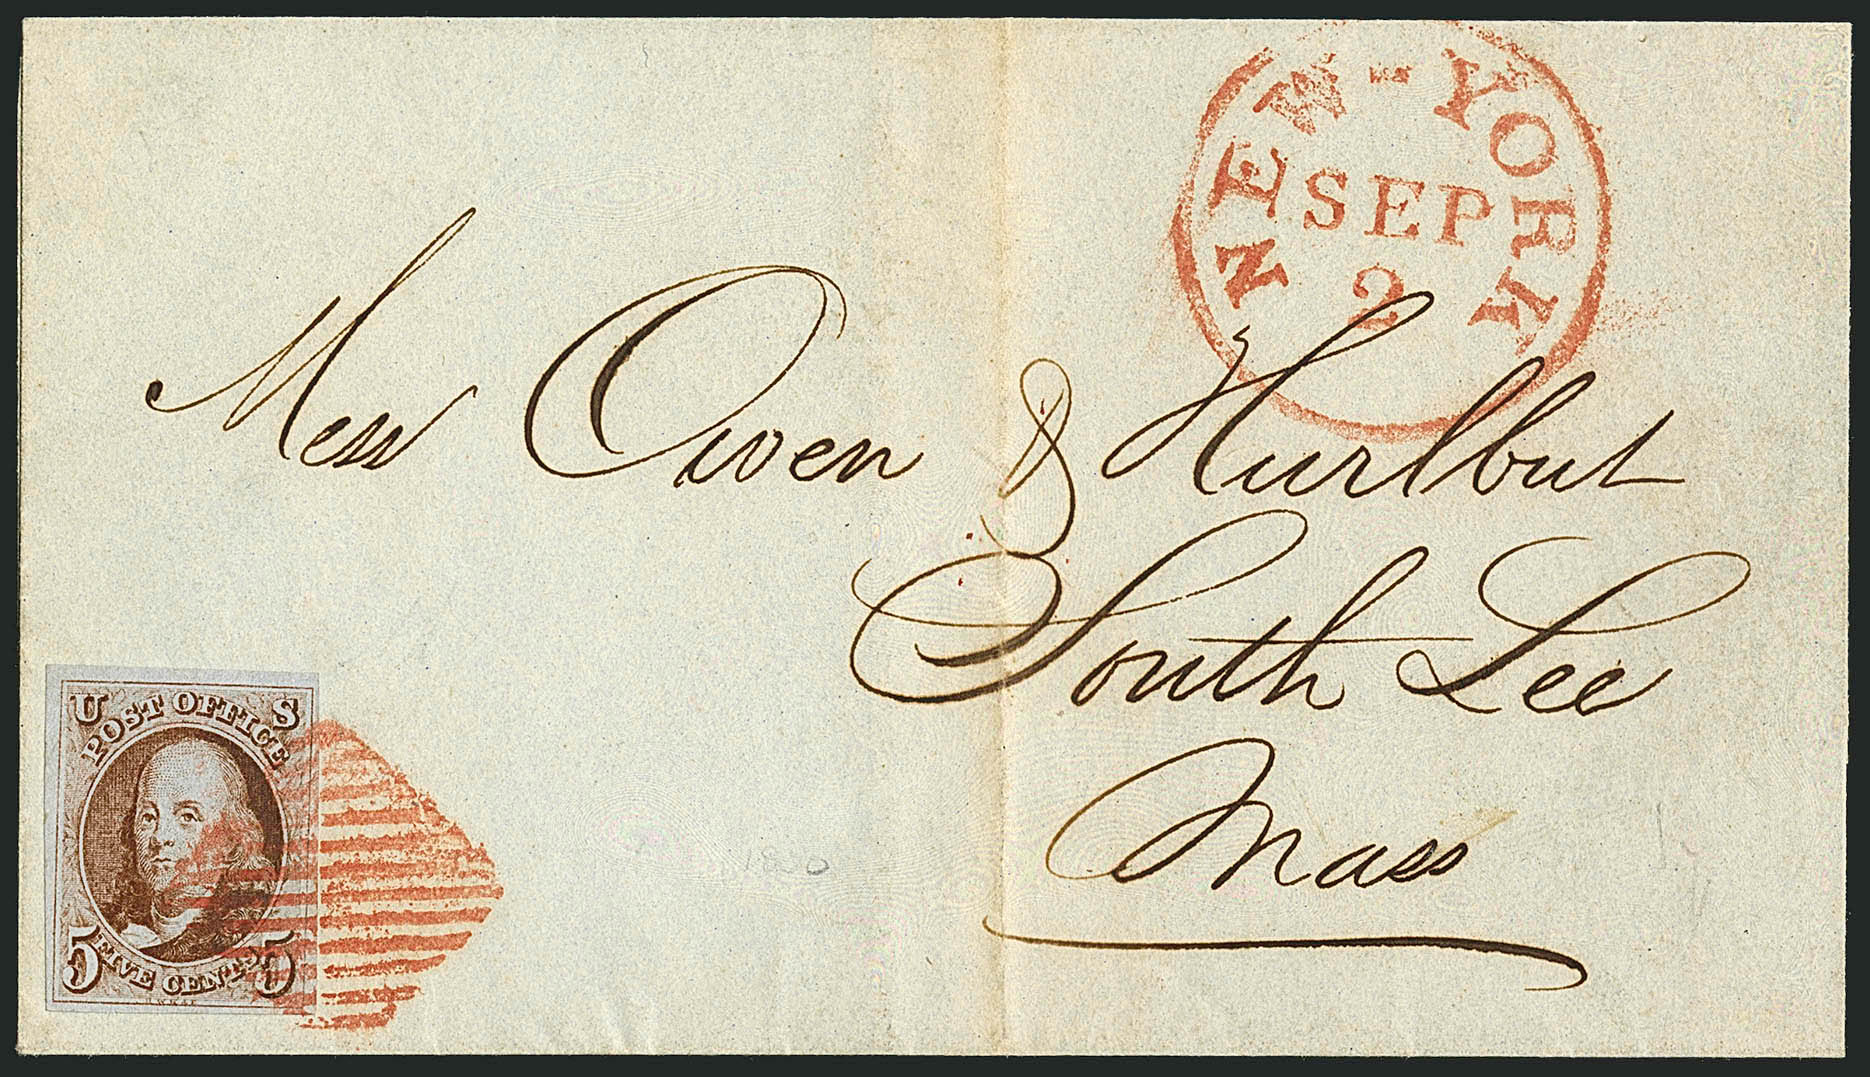 NEW-YORK
SEP
2
Mess Owen & Hurlbut
South Lee
Mass
U S
POST OFFICE
5 FIVE CENTS 5